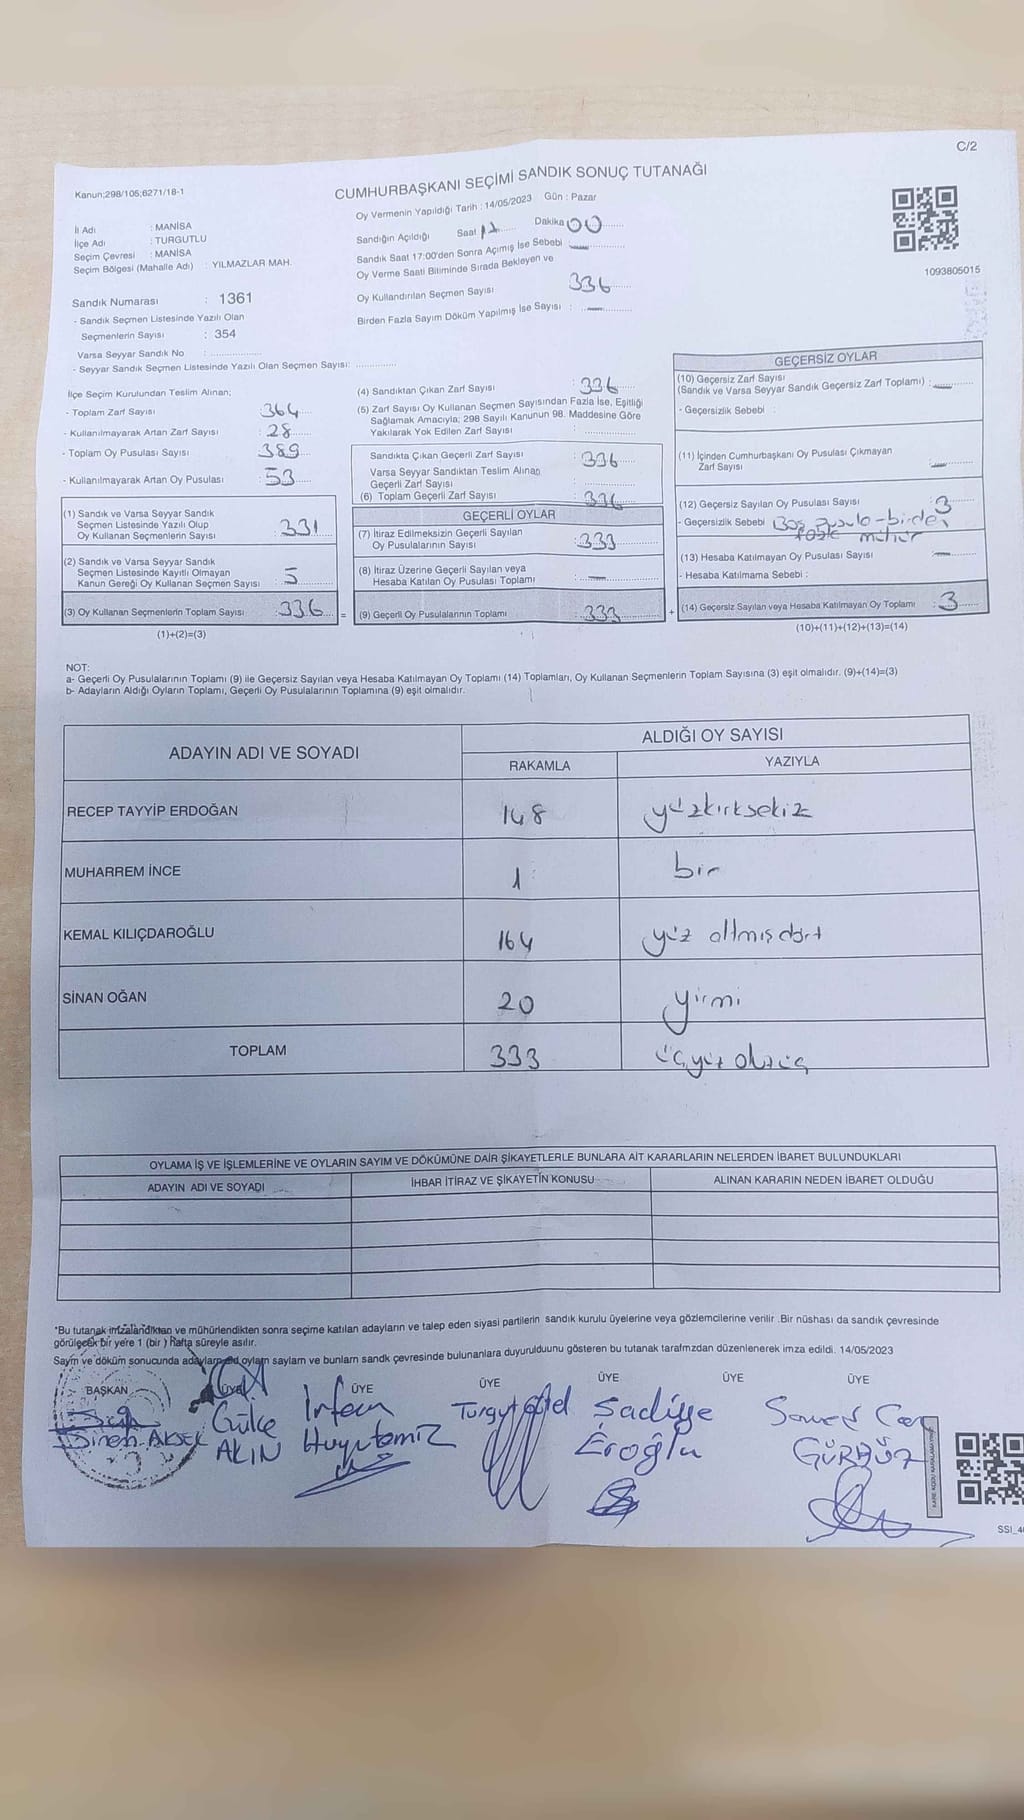 C/2
Kanun;298/105;6271/18-1
CUMHURBAŞKANI SEÇİMİ SANDIK SONUÇ TUTANAĞI
Oy Vermenin Yapıldığı Tarih : 14/05/2023 Gün : Pazar
İl Adı : MANİSA
İlçe Adı : TURGUTLU
Seçim Çevresi : MANİSA
Seçim Bölgesi (Mahalle Adı) : YILMAZLAR MAH.
Sandık Numarası : 1361
- Sandık Seçmen Listesinde Yazılı Olan
Seçmenlerin Sayısı : 354
Varsa Seyyar Sandık No :
- Seyyar Sandık Seçmen Listesinde Yazılı Olan Seçmen Sayısı:
Sandığın Açıldığı Saat 17 Dakika 00
Sandık Saat 17:00'den Sonra Açımış İse Sebebi —
Oy Verme Saati Bitiminde Sırada Bekleyen ve
Oy Kullandırılan Seçmen Sayısı 336
Birden Fazla Sayım Döküm Yapılmış İse Sayısı : —
1093805015
İlçe Seçim Kurulundan Teslim Alınan;
- Toplam Zarf Sayısı : 364
- Kullanılmayarak Artan Zarf Sayısı : 28
- Toplam Oy Pusulası Sayısı : 389
- Kullanılmayarak Artan Oy Pusulası : 53
(1) Sandık ve Varsa Seyyar Sandık
Seçmen Listesinde Yazılı Olup
Oy Kullanan Seçmenlerin Sayısı : 331
(2) Sandık ve Varsa Seyyar Sandık
Seçmen Listesinde Kayıtlı Olmayan
Kanun Gereği Oy Kullanan Seçmen Sayısı : 5
(3) Oy Kullanan Seçmenlerin Toplam Sayısı : 336 =
(1)+(2)=(3)
(4) Sandıktan Çıkan Zarf Sayısı : 336
(5) Zarf Sayısı Oy Kullanan Seçmen Sayısından Fazla İse, Eşitliği
Sağlamak Amacıyla; 298 Sayılı Kanunun 98. Maddesine Göre
Yakılarak Yok Edilen Zarf Sayısı :
Sandıkta Çıkan Geçerli Zarf Sayısı : 336
Varsa Seyyar Sandıktan Teslim Alınan
Geçerli Zarf Sayısı :
(6) Toplam Geçerli Zarf Sayısı : 336
GEÇERLİ OYLAR
(7) İtiraz Edilmeksizin Geçerli Sayılan
Oy Pusulalarının Sayısı : 333
(8) İtiraz Üzerine Geçerli Sayılan veya
Hesaba Katılan Oy Pusulası Toplamı : —
(9) Geçerli Oy Pusulalarının Toplamı : 333 +
GEÇERSİZ OYLAR
(10) Geçersiz Zarf Sayısı
(Sandık ve Varsa Seyyar Sandık Geçersiz Zarf Toplamı) : —
- Geçersizlik Sebebi :
(11) İçinden Cumhurbaşkanı Oy Pusulası Çıkmayan
Zarf Sayısı : —
(12) Geçersiz Sayılan Oy Pusulası Sayısı : 3
- Geçersizlik Sebebi Boş pusula - birden
fazla mühür
(13) Hesaba Katılmayan Oy Pusulası Sayısı : —
- Hesaba Katılmama Sebebi :
(14) Geçersiz Sayılan veya Hesaba Katılmayan Oy Toplamı : 3
(10)+(11)+(12)+(13)=(14)
NOT:
a- Geçerli Oy Pusulalarının Toplamı (9) ile Geçersiz Sayılan veya Hesaba Katılmayan Oy Toplamı (14) Toplamları, Oy Kullanan Seçmenlerin Toplam Sayısına (3) eşit olmalıdır. (9)+(14)=(3)
b- Adayların Aldığı Oyların Toplamı, Geçerli Oy Pusulalarının Toplamına (9) eşit olmalıdır.
ADAYIN ADI VE SOYADI ALDIĞI OY SAYISI
RAKAMLA YAZIYLA
RECEP TAYYİP ERDOĞAN 148 yüzkırksekiz
MUHARREM İNCE 1 bir
KEMAL KILIÇDAROĞLU 164 yüz altmışdört
SİNAN OĞAN 20 yirmi
TOPLAM 333 üçyüz otuzüç
OYLAMA İŞ VE İŞLEMLERİNE VE OYLARIN SAYIM VE DÖKÜMÜNE DAİR ŞİKAYETLERLE BUNLARA AİT KARARLARIN NELERDEN İBARET BULUNDUKLARI
ADAYIN ADI VE SOYADI İHBAR İTİRAZ VE ŞİKAYETİN KONUSU ALINAN KARARIN NEDEN İBARET OLDUĞU
*Bu tutanak imzalandıktan ve mühürlendikten sonra seçime katılan adayların ve talep eden siyasi partilerin sandık kurulu üyelerine veya gözlemcilerine verilir .Bir nüshası da sandık çevresinde
görülecek bir yere 1 (bir ) hafta süreyle asılır.
Sayım ve döküm sonucunda adayların oyları sayları ve bunların sandk çevresinde bulunanlara duyurulduunu gösteren bu tutanak tarafmzdan düzenlenerek imza edildi. 14/05/2023
BAŞKAN ÜYE ÜYE ÜYE ÜYE ÜYE ÜYE
Sinem AKSEK
Gülce
AKIN
İrfan
Huyutemiz
Turgut
Sadiye
Eroğlu
Saner Can
GÜRBÜZ